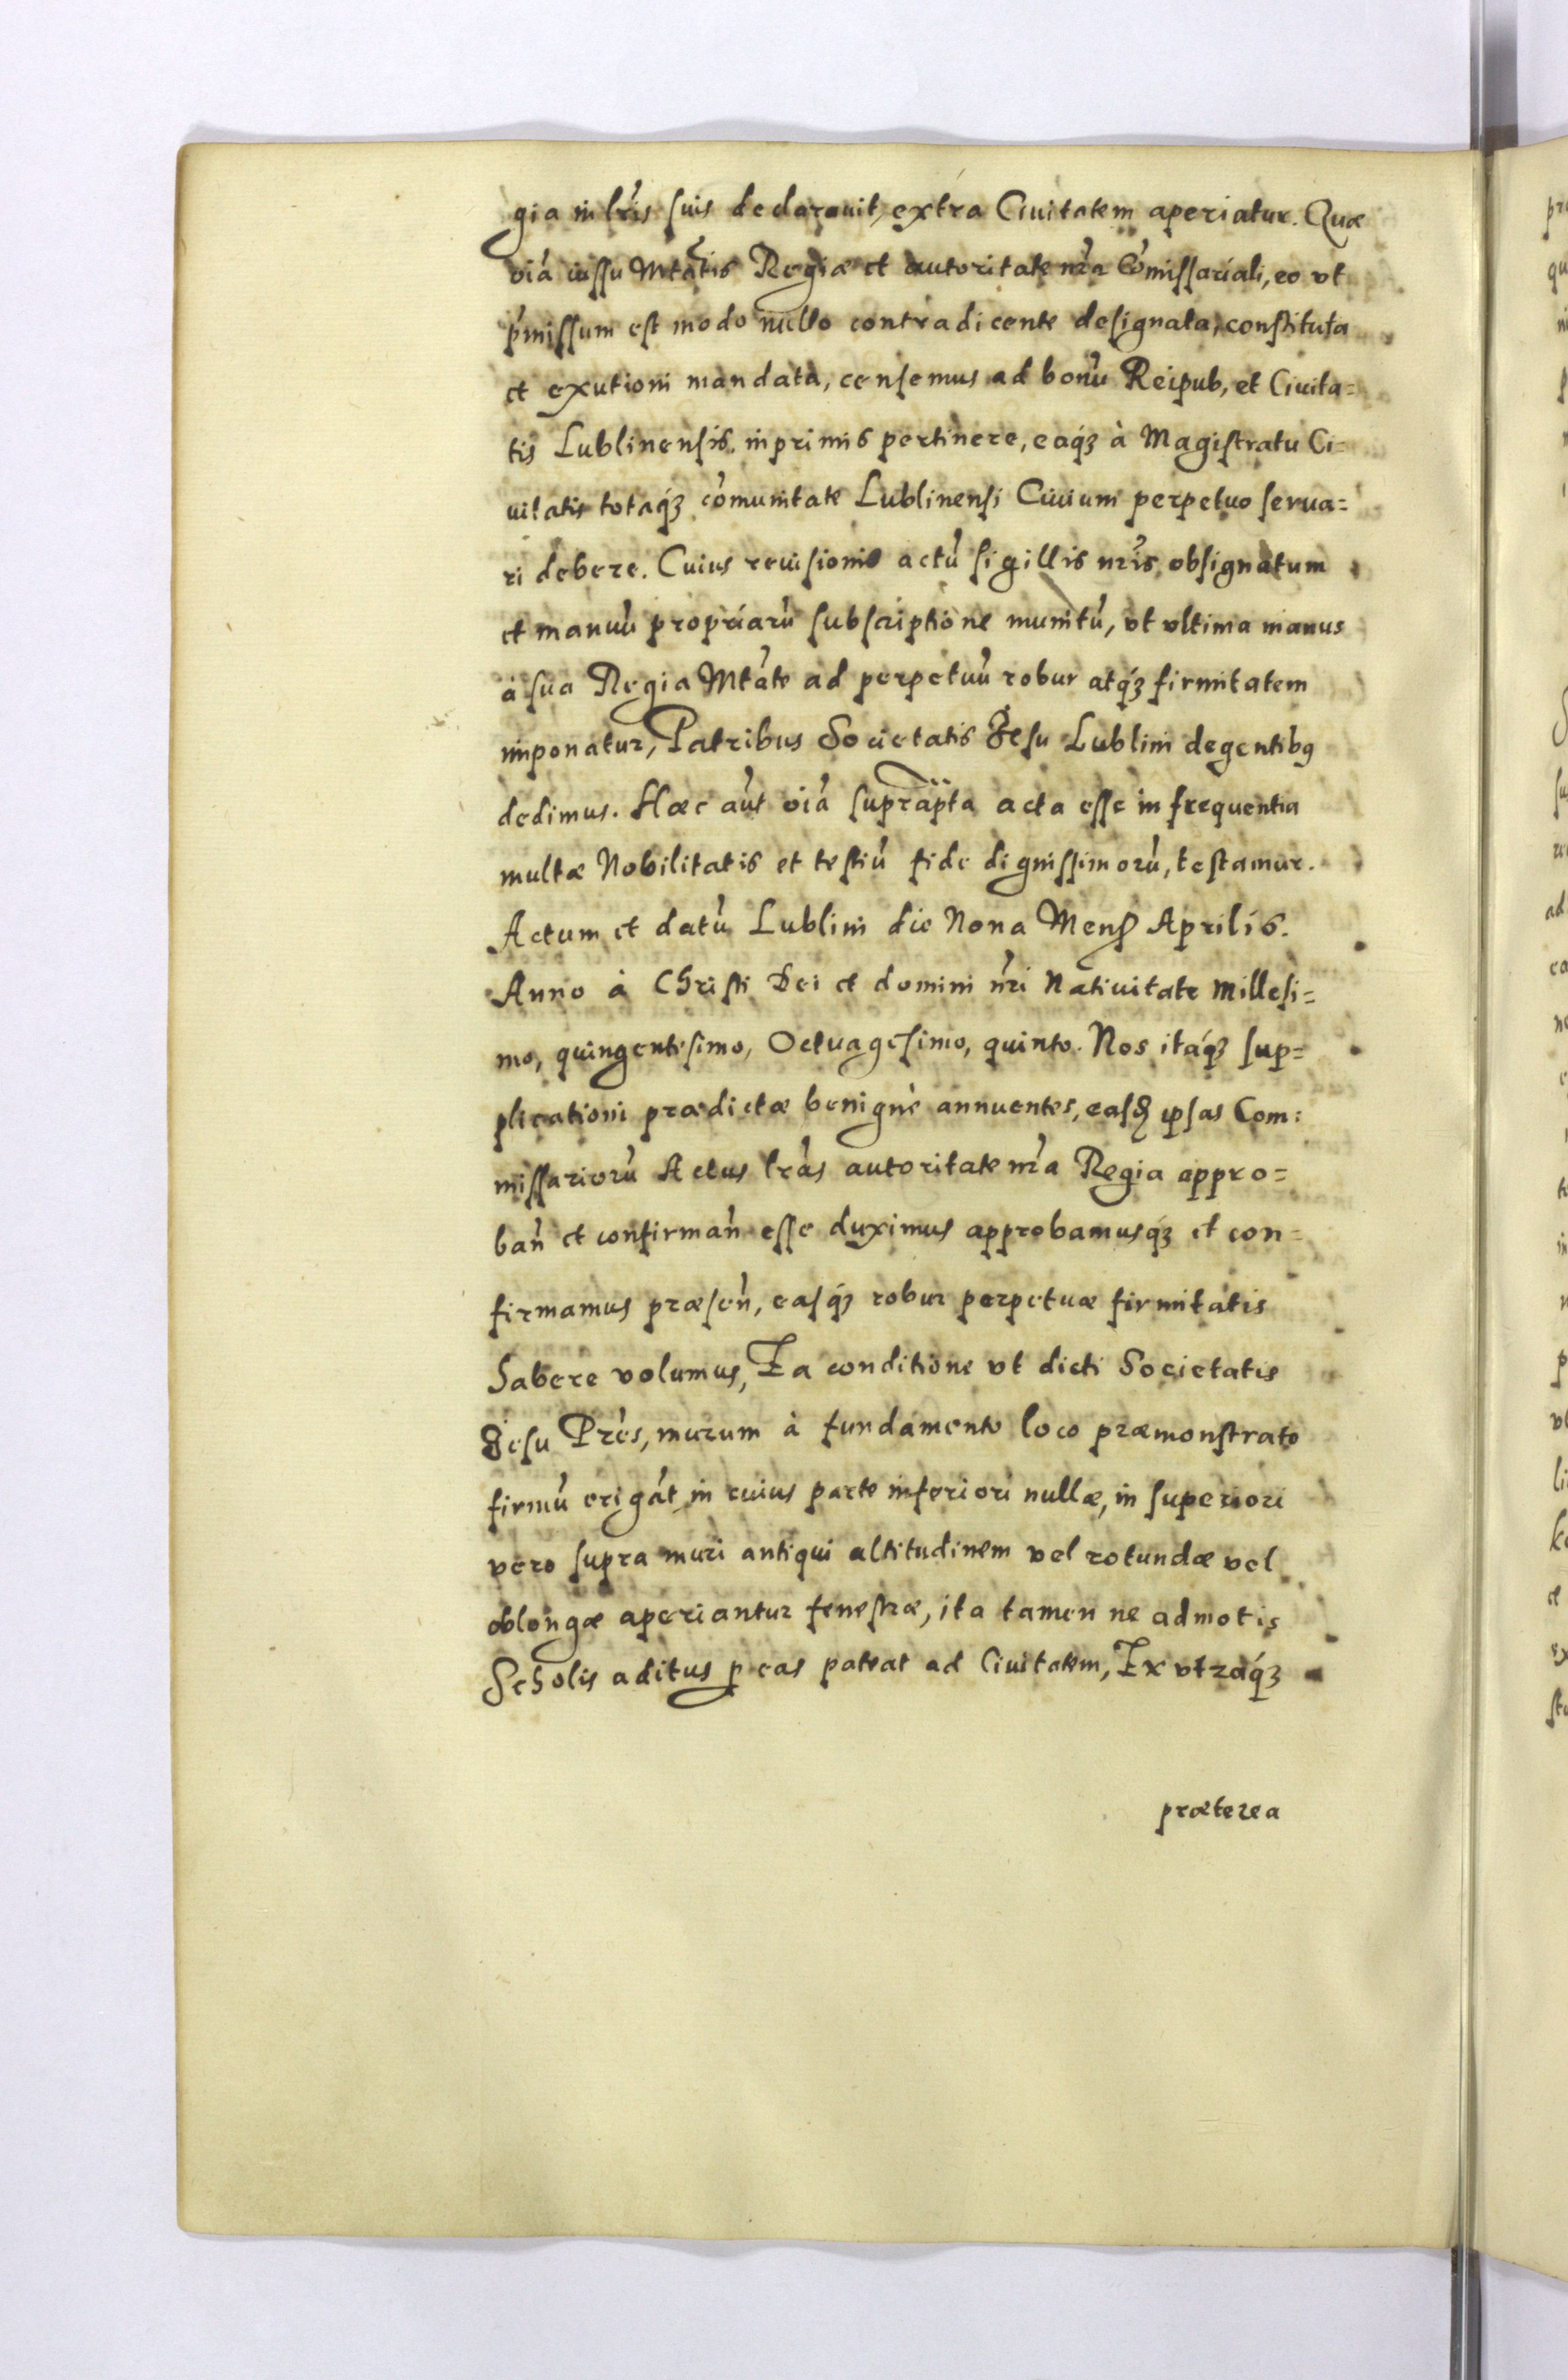 gia in lr̃is suis declarauit, extra Ciuitatem aperiatur. Quæ
oĩa iussu Mtatis Regiæ et autoritate nr̃a Cõmissariali, eo vt
p̃missum est modo nullo contradicente designata, constituta
et exutioni mandata, censemus ad bonũ Reipub, et Ciuita=
tis Lublinensis. inprimis pertinere, eaqꝫ à Magistratu Ci=
uitatis totaqꝫ cõmunitate Lublinensi Ciuium perpetuo serua=
ri debere. Cuius reuisionis actũ sigillis nr̃is obsignatum
et manuũ propriarũ subscriptione munitũ, vt vltima manus
à sua Regia Mtãte ad perpetuũ robur atqꝫ firmitatem
imponatur, Patribus Societatis Jesu Lublini degentibꝰ
dedimus. Hæc aũt oĩa suprap̃ta acta esse in frequentia
multæ Nobilitatis et testiũ fide dignissimorũ, testamur.
Actum et datũ Lublini die Nona Mensꝭ Aprilis.
Anno à Christi Dei et domini nr̃i Natiuitate Millesi=
mo, quingentesimo, Octuagesimo, quinto. Nos itaqꝫ sup=
plicationi prædictæ benignè annuentes, easdꝫ ipsas Com:
missariorũ Actus lr̃as autoritate nr̃a Regia appro=
bañ et confirmañ esse duximus approbamusqꝫ et con=
firmamus præseñ, easqꝫ robur perpetuæ firmitatis
habere volumus, Ea conditione vt dicti Societatis
Jesu Pr̃es, murum à fundamento loco præmonstrato
firmũ erigãt, in cuius parte inferiori nullæ, in superiori
vero supra muri antiqui altitudinem vel rotundæ vel
oblongæ aperiantur fenestræ, ita tamen ne admotis
Scholis aditus ꝑ eas pateat ad Ciuitatem, Ex vtraqꝫ
præterea